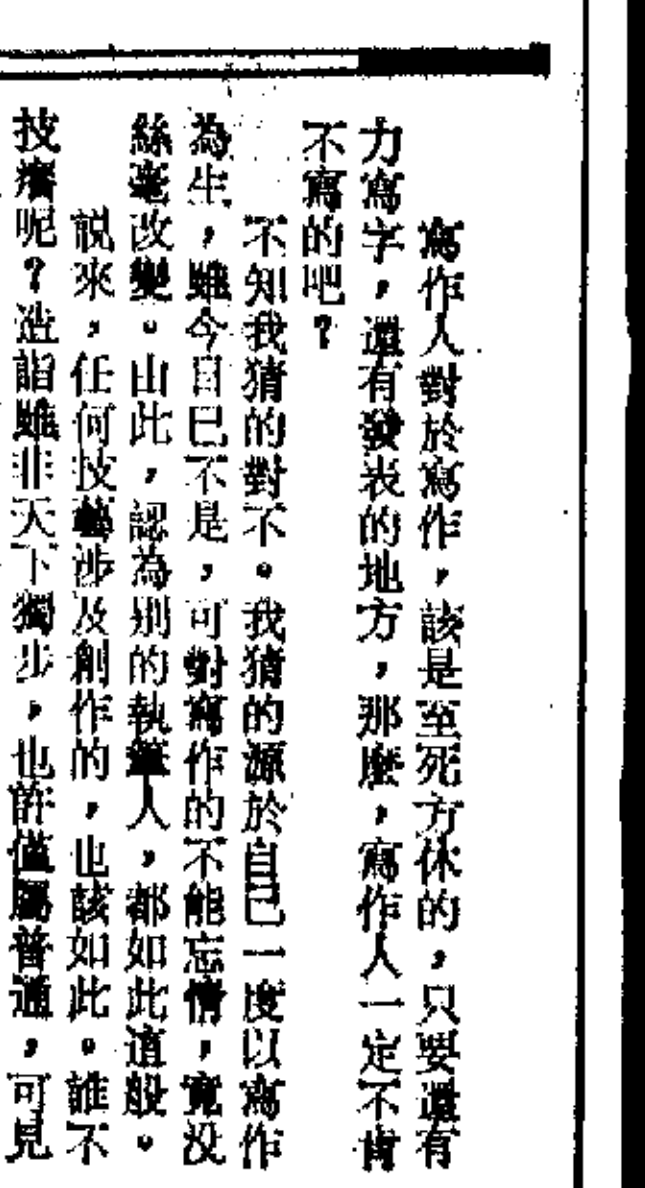 寫作人對於寫作，該是至死方休的，只要還有
力寫字，還有發表的地方，那麼，寫作人一定不肯
不寫的吧？
不知我猜的對不。我猜的源於自己一度以寫作
為生，雖今日已不是，可對寫作的不能忘情，竟没
絲毫改變。由此，認為別的執筆人，都如此這般。
説來，任何技藝涉及創作的，也該如此。誰不
技癢呢？造詣雖非天下獨步，也許僅屬普通，可見